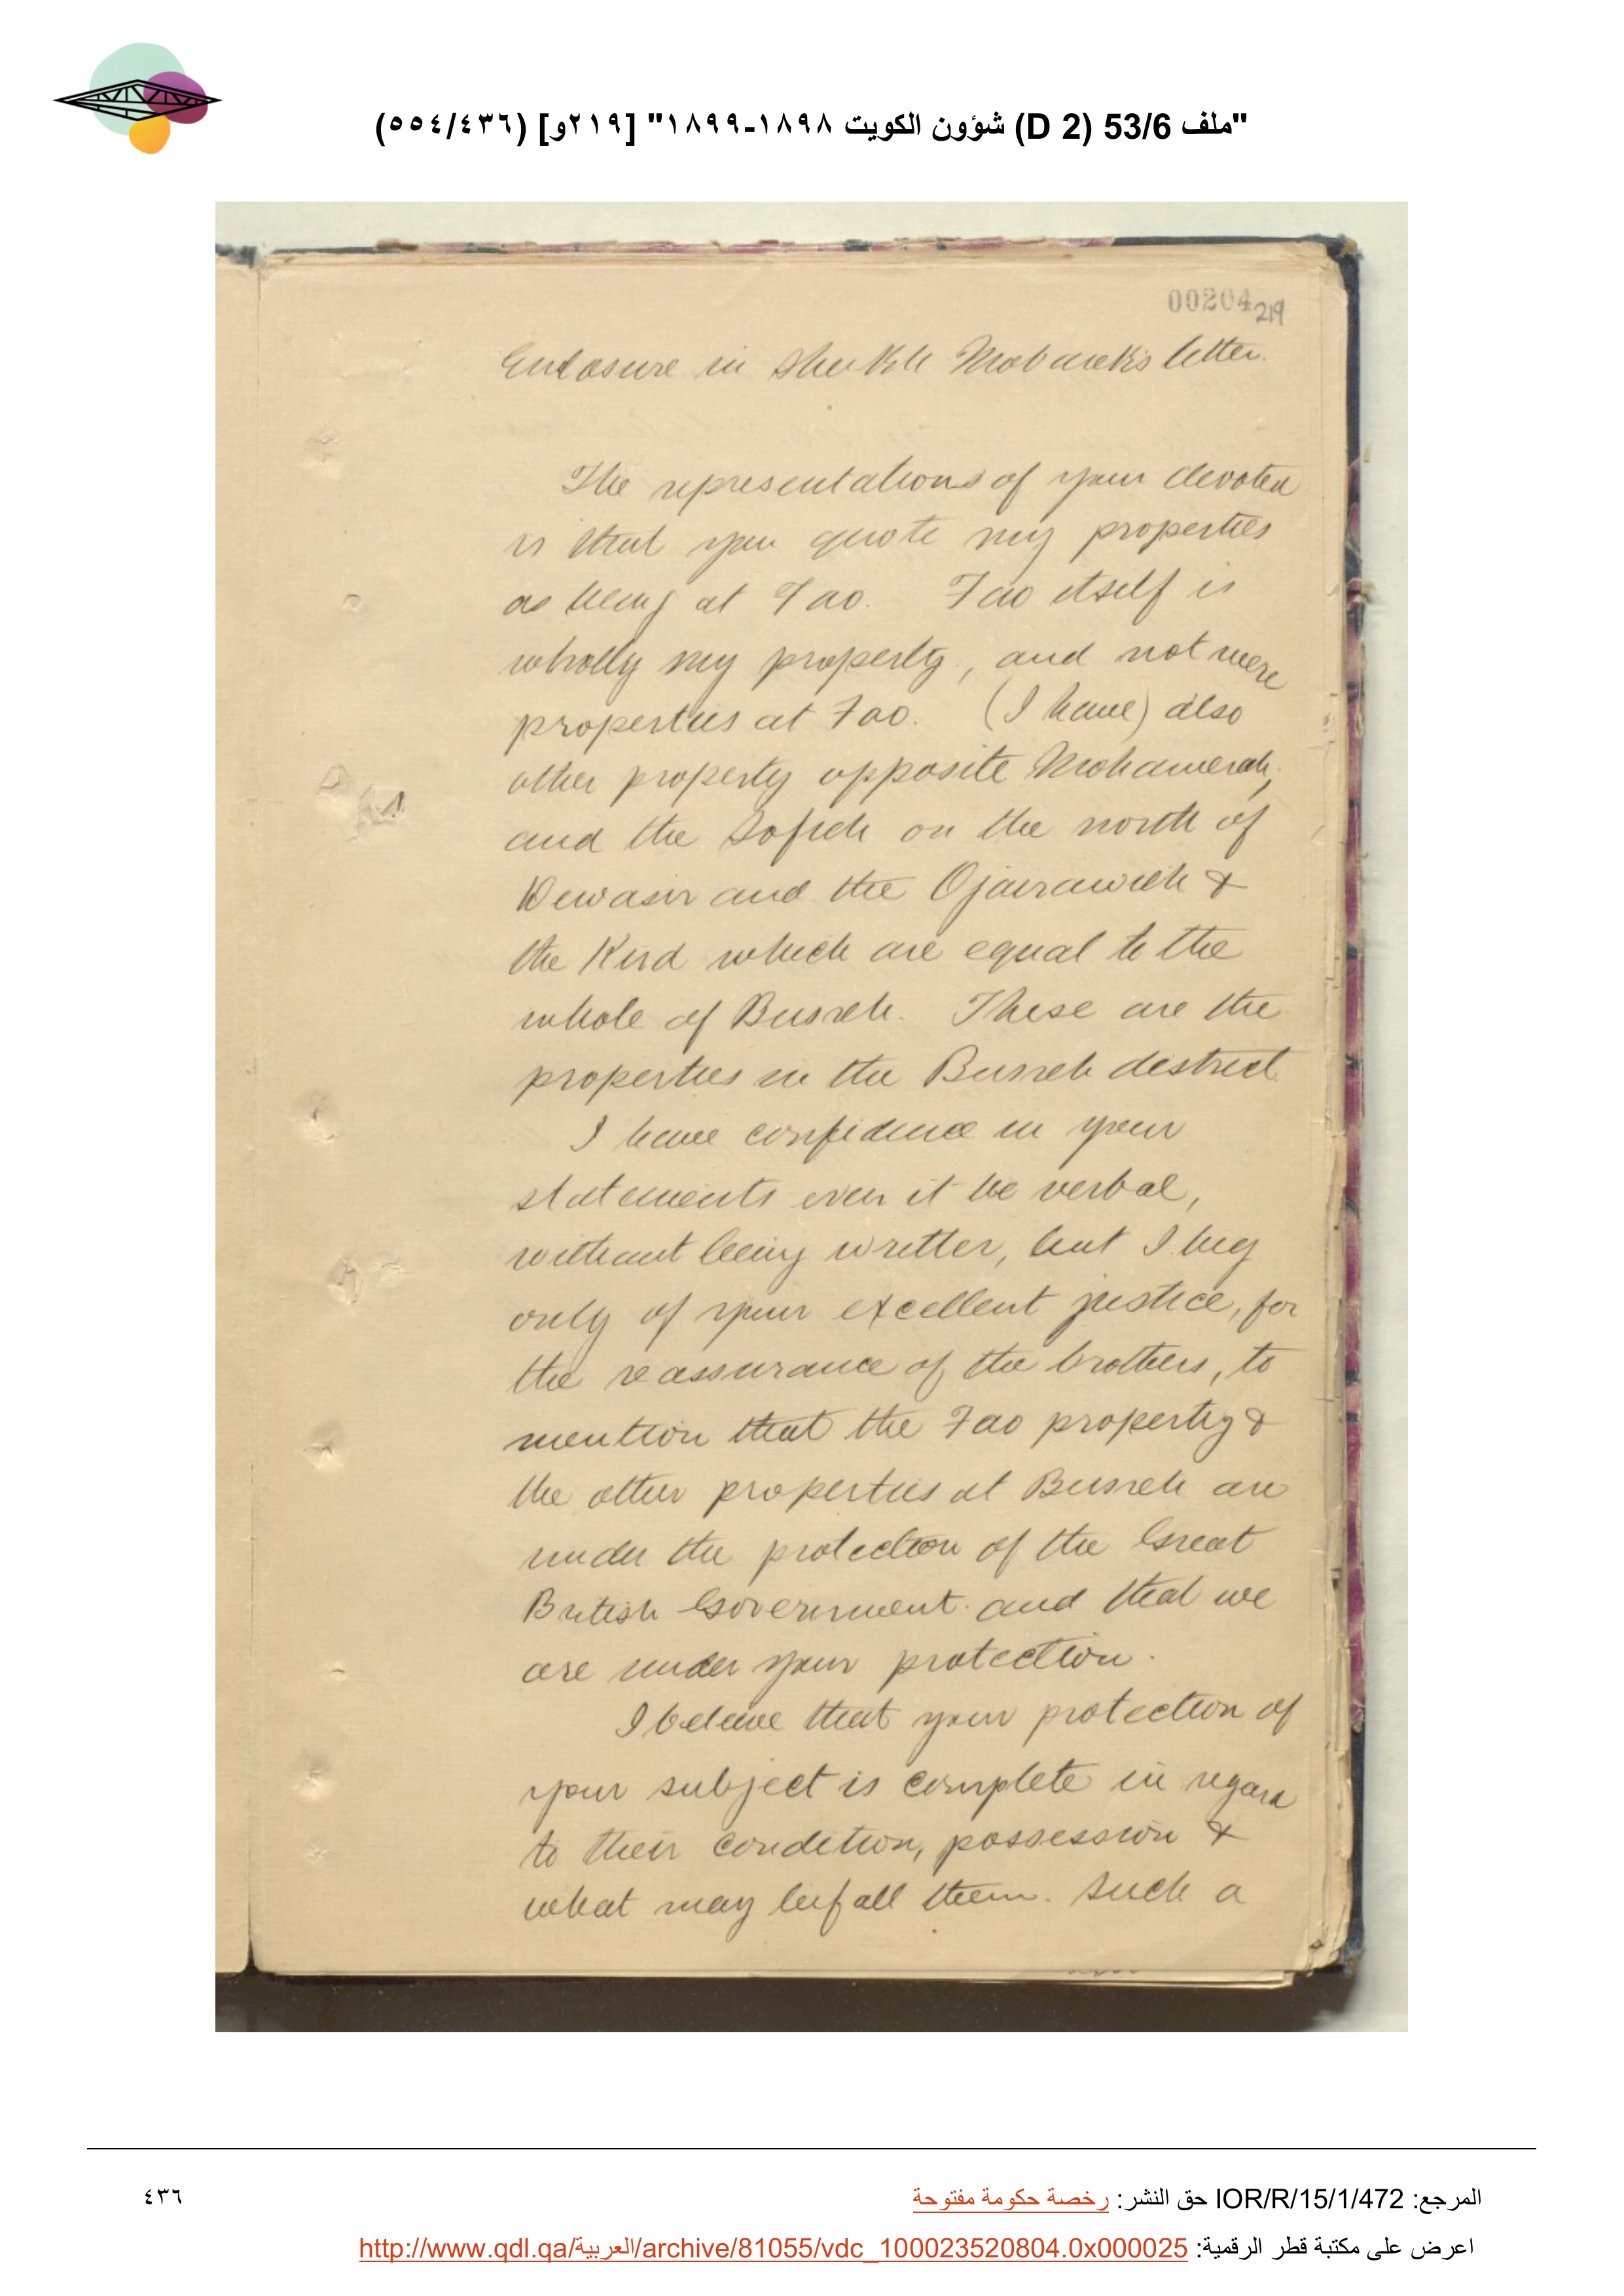 "ملف 53/6 (D 2) شؤون الكويت ١٨٩٨-١٨٩٩" [٢١٩و] (٥٥٤/٤٣٦)
00204
219
Enclosure in Sheikh Mobarek's letter.
The representations of your devoted
is that you quote my properties
as being at Fao. Fao itself is
wholly my property, and not mere
properties at Fao. (I have) also
other property opposite Mohamerah,
and the Sofieh on the north of
Dewasir and the Ojairawieh &
the Kird which are equal to the
whole of Busreh. These are the
properties in the Busreh destrict
I have confidence in your
statements even it be verbal,
without being writter, but I beg
only of your excellent justice, for
the reassurance of the brothers, to
mention that the Fao property &
the other properties at Busreh are
under the protection of the Great
British Government and that we
are under your protection.
I beleive that your protection of
your subject is complete in regard
to their condition, possession &
what may befall them. Such a
المرجع: IOR/R/15/1/472 حق النشر: رخصة حكومة مفتوحة
٤٣٦
اعرض على مكتبة قطر الرقمية: http://www.qdl.qa/العربية/archive/81055/vdc_100023520804.0x000025